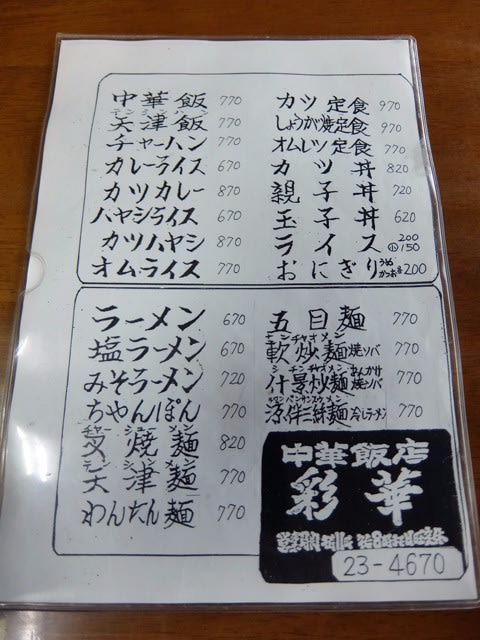 中華飯 770
テンシンハン
天津飯 770
チャーハン 770
カレーライス 670
カツカレー 870
ハヤシライス 670
カツハヤシ 870
オムライス 770
カツ定食 970
しょうが焼定食 970
オムレツ定食 770
カツ丼 820
親子丼 720
玉子丼 620
ライス 200 小150
おにぎり うめ かつお 各200
ラーメン 670
塩ラーメン 670
みそラーメン 720
ちゃんぽん 770
チャーシューメン
叉焼麺 820
テンシンメン
天津麺 770
わんたん麺 770
五目麺 770
軟炒麺 焼ソバ 770
什景炒麺 あんかけ焼ソバ 770
涼伴三絲麺 冷しラーメン 770
中華飯店
彩華
23-4670